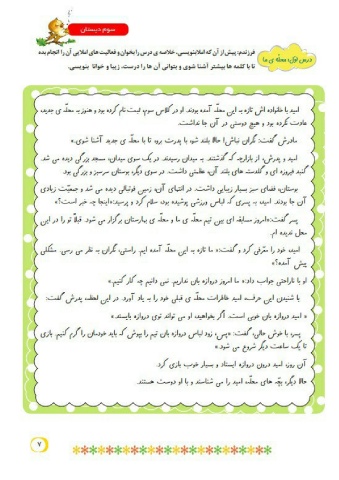 سوم دبستان
فرزندم: پیش از آن که املا بنویسی، خلاصه ی درس را بخوان و فعالیت های املایی آن را انجام بده
تا با کلمه ها بیشتر آشنا شوی و بتوانی آن ها را درست، زیبا و خوانا بنویسی.
درس اول: محلّه ی ما
امید با خانواده اش تازه به این محلّه آمده بودند. او در کلاس سوم، ثبت نام کرده بود و هنوز به محلّه ی جدید،
عادت نکرده بود و هیچ دوستی در آن جا نداشت.
مادرش گفت: نگران نباش! حالا بلند شو، با پدرت برو، تا با محلّه ی جدید آشنا شوی.»
امید و پدرش، از بازارچه که گذشتند به میدان رسیدند. در یک سوی میدان، مسجد بزرگی دیده می شد.
گنبد فیروزه ای و گلدسته های بلند آن، عظمتی داشت. در سوی دیگر، بوستان سرسبز و بزرگی بود.
بوستان، فضای سبز بسیار زیبایی داشت. در انتهای آن، زمین فوتبالی دیده می شد و جمعیّت زیادی
آن جا بودند. امید، به پسری که لباس ورزشی پوشیده بود، سلام کرد و پرسید:«اینجا چه خبر است؟»
پسر گفت:«امروز مسابقه ای بین تیم محلّه ی ما و محلّه ی بهارستان برگزار می شود. قبلاً تو را در این
محل ندیده ام.
امید، خود را معرّفی کرد و گفت:«ما تازه به این محلّه آمده ایم. راستی، نگران به نظر می رسی. مشکلی
پیش آمده؟»
او با ناراحتی جواب داد:« ما امروز دروازه بان نداریم. نمی دانیم چه کار کنیم.»
با شنیدن این حرف، امید خاطرات محلّه ی قبلی خود را به یاد آورد. در این لحظه، پدرش گفت:
« امید دروازه بان خوبی است. اگر بخواهید، او می تواند توی دروازه بایستد.»
پسر، با خوش حالی، گفت: «پس، زود لباس دروازه بان تیم را بپوش که باید خودمان را گرم کنیم. بازی
تا یک ساعت دیگر شروع می شود.»
آن روز، امید درون دروازه ایستاد و بسیار خوب بازی کرد.
حالا دیگر، بچّه های محلّه، امید را می شناسند و با او دوست هستند.
۷